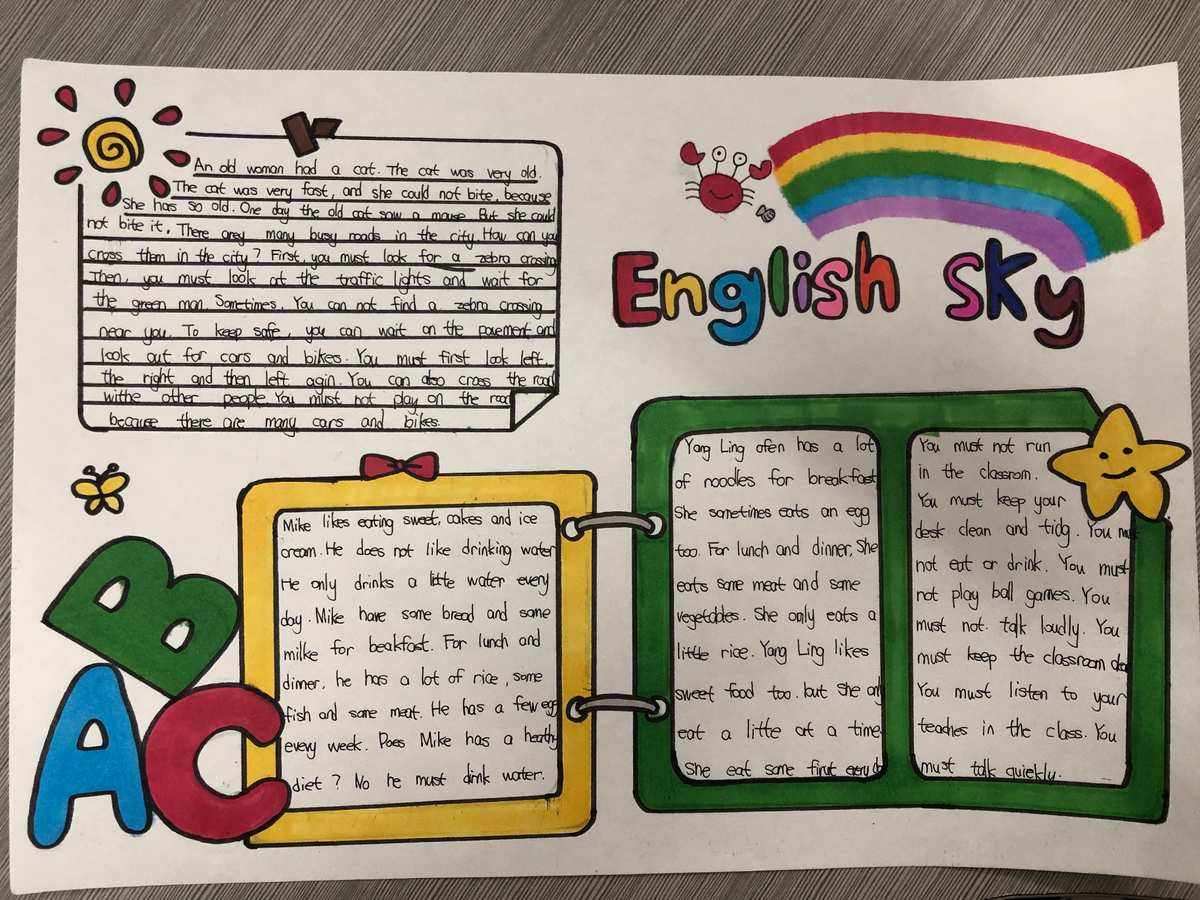 An old woman had a cat. The cat was very old.
The cat was very fast, and she could not bite, because
She has so old. One day the old cat saw a mouse. But she could
not bite it. There arey many busy roads in the city. How can you
cross them in the city? First, you must look for a zebra crossing
Then, you must look at the traffic lights and wait for
the green man. Sometimes. You can not find a zebra crossing
near you. To keep safe, you can wait on the pavement and
look out for cars and bikes. You must first look left,
the right and then left agin. You can also cross the road
withe other people. You must not play on the road
because there are many cars and bikes.
English sky
B
A C
Mike likes eating sweet, cakes and ice
cream. He does not like drinking water
He only drinks a little water every
day. Mike have some bread and some
milke for beakfast. For lunch and
dinner, he has a lot of rice, some
fish and some meat. He has a few egg
every week. Does Mike has a heathy
diet? No he must drink water.
Yang Ling ofen has a lot
of noodles for breakfast
She sometimes eats an egg
too. For lunch and dinner, She
eats some meat and some
vegetables. She only eats a
little rice. Yang Ling likes
sweet food too. but She only
eat a litte at a time
She eat some firut
You must not run
in the classrom.
You must keep your
desk clean and tidg. You must
not eat or drink. You must
not play ball games. You
must not. talk loudly. You
must keep the classroom
You must listen to your
teaches in the class. You
must talk quiekly.